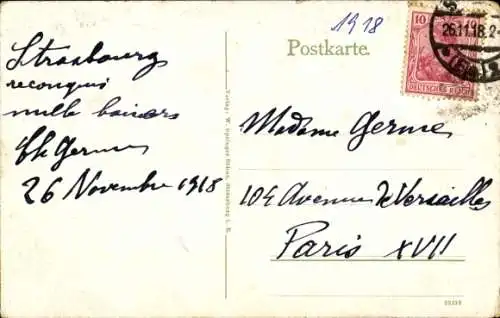 1918
Postkarte.
10
DEUTSCHES REICH
26.11.18.2-
Strasbourg
reconquis
mille baisers
Ch Germe
26 Novembre 1918
Madame Germe
104 Avenue de Versailles
Paris XVII